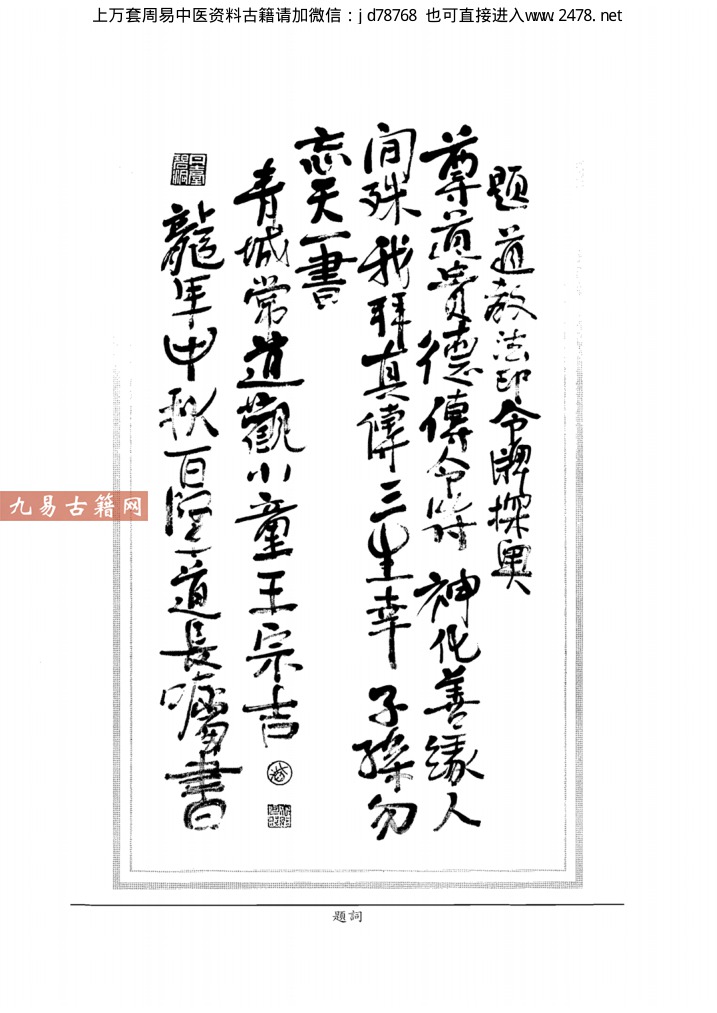 上万套周易中医资料古籍请加微信：jd78768 也可直接进入www.2478.net
题道教法印令牌探奥
尊道贵德傳令符 神化善缘人
间殊 我拜真傳三生幸 子孫勿
忘天一書
青城常道觀小童王宗吉
龍年中秋百 道長囑書
九易古籍网
題詞